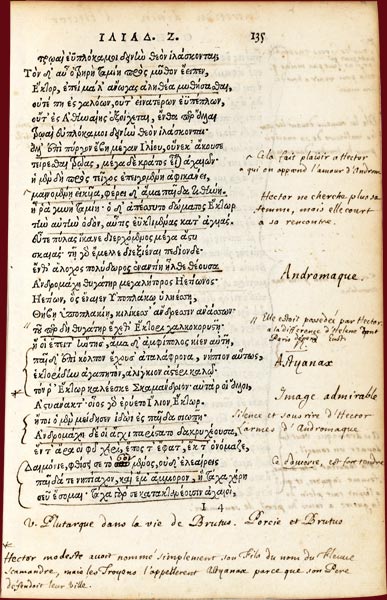 ΙΛΙΑΔ. Ζ. 135
τρῳαὶ ἐϋπλόκαμοι δεινὴν θεὸν ἱλάσκονται,
Τὸν δ' αὖ ὀτρηρὴ ταμίη πρὸς μῦθον ἔειπεν,
Ἕκτορ, ἐπεὶ μάλ' ἄνωγας ἀληθέα μυθήσασθαι,
οὔτε πῃ ἐς γαλόων, οὔτ' εἰνατέρων εὐπέπλων,
οὔτ' ἐς Ἀθηναίης ἐξοίχεται, ἔνθά περ ἄλλαι
τρῳαὶ ἐϋπλόκαμοι δεινὴν θεὸν ἱλάσκονται·
ἀλλ' ἐπὶ πύργον ἔβη μέγαν Ἰλίου, οὕνεκ' ἄκουσε
τείρεσθαι τρῶας, μέγα δὲ κράτος εἶναι ἀχαιῶν·
ἡ μὲν δὴ πρὸς τεῖχος ἐπειγομένη ἀφικάνει,
μαινομένῃ εἰκυῖα, φέρει δ' ἅμα παῖδα τιθήνη.
ἦ ῥα γυνὴ ταμίη· ὁ δ' ἀπέσσυτο δώματος Ἕκτωρ
τὴν αὐτὴν ὁδὸν, αὖτις ἐϋκτιμένας κατ' ἀγυιάς.
εὖτε πύλας ἵκανε διερχόμενος μέγα ἄστυ
σκαιάς· τῇ γὰρ ἔμελλε διεξίμεναι πεδίονδε·
ἔνθ' ἄλοχος πολύδωρος ἐναντίη ἦλθε θέουσα
Ἀνδρομάχη θυγάτηρ μεγαλήτορος Ἠετίωνος·
Ἠετίων, ὃς ἔναιεν Ὑποπλάκῳ ὑληέσσῃ,
Θήβῃ ὑποπλακίῃ, κιλίκεσσ' ἄνδρεσσιν ἀνάσσων·
τοῦ περ δὴ θυγάτηρ ἔχεθ' Ἕκτορι χαλκοκορυστῇ·
ἥ οἱ ἔπειτ' ἤντησ', ἅμα δ' ἀμφίπολος κίεν αὐτῇ,
παῖδ' ἐπὶ κόλπον ἔχουσ' ἀταλάφρονα, νήπιον αὕτως,
ἑκτορίδην ἀγαπητὸν, ἀλίγκιον ἀστέρι καλῷ·
τόν ῥ' Ἕκτωρ καλέεσκε Σκαμάνδριον αὐτὰρ οἱ ἄλλοι,
Ἀστυάνακτ'· οἶος γὰρ ἐρύετο Ἴλιον Ἕκτωρ.
ἤτοι ὁ μὲν μείδησεν ἰδὼν ἐς παῖδα σιωπῇ·
Ἀνδρομάχη δέ οἱ ἄγχι παρίστατο δακρυχέουσα,
ἔν τ' ἄρα οἱ φῦ χειρὶ, ἔπος τ' ἔφατ', ἔκ τ' ὀνόμαζε,
Δαιμόνιε, φθίσει σε τὸ σὸν μένος, οὐδ' ἐλεαίρεις
παῖδά τε νηπίαχον, καὶ ἔμ' ἄμμορον, ἣ τάχα χήρη
σεῦ ἔσομαι· τάχα γάρ σε κατακτανέουσιν ἀχαιοὶ,
I 4
Cela fait plaisir a Hector
qui on apprend l'amour d'Androm.
Hector ne cherche plus sa
femme, mais elle court
a sa rencontre.
Andromaque
Elle estoit possedée par Hector
a la difference d'Helene dont
Paris
Astyanax
Image admirable
Silence et sousrire d'Hector
Larmes d'Andromaque
Ce discours est fort tendre
v. Plutarque dans la vie de Brutus. Porcie et Brutus
* Hector modeste avoit nommé simplement son Fils du nom du Fleuve
Scamandre, mais les Troyens l'appellerent Astyanax parce que son Pere
defendoit leur ville.